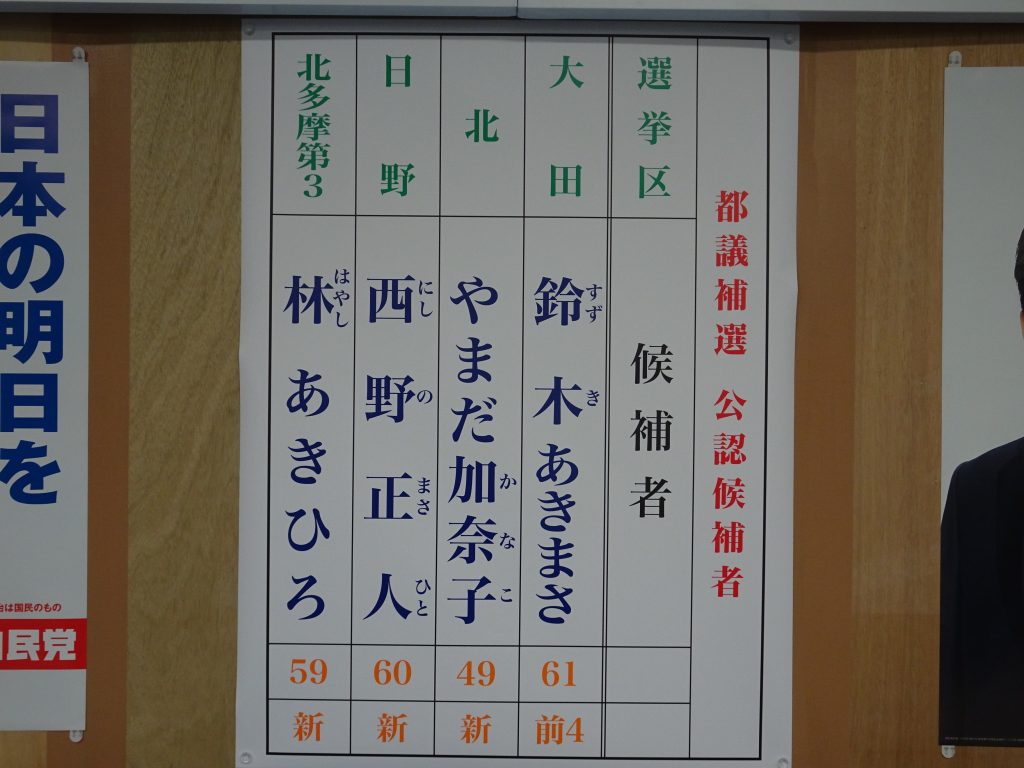 都議補選 公認候補者
選挙区
候補者
大田
鈴木あきまさ
すずき
61
前4
北
やまだ加奈子
かなこ
49
新
日野
西野正人
にしのまさひと
60
新
北多摩第3
林あきひろ
はやし
59
新
日本の明日を
治は国民のもの
自民党